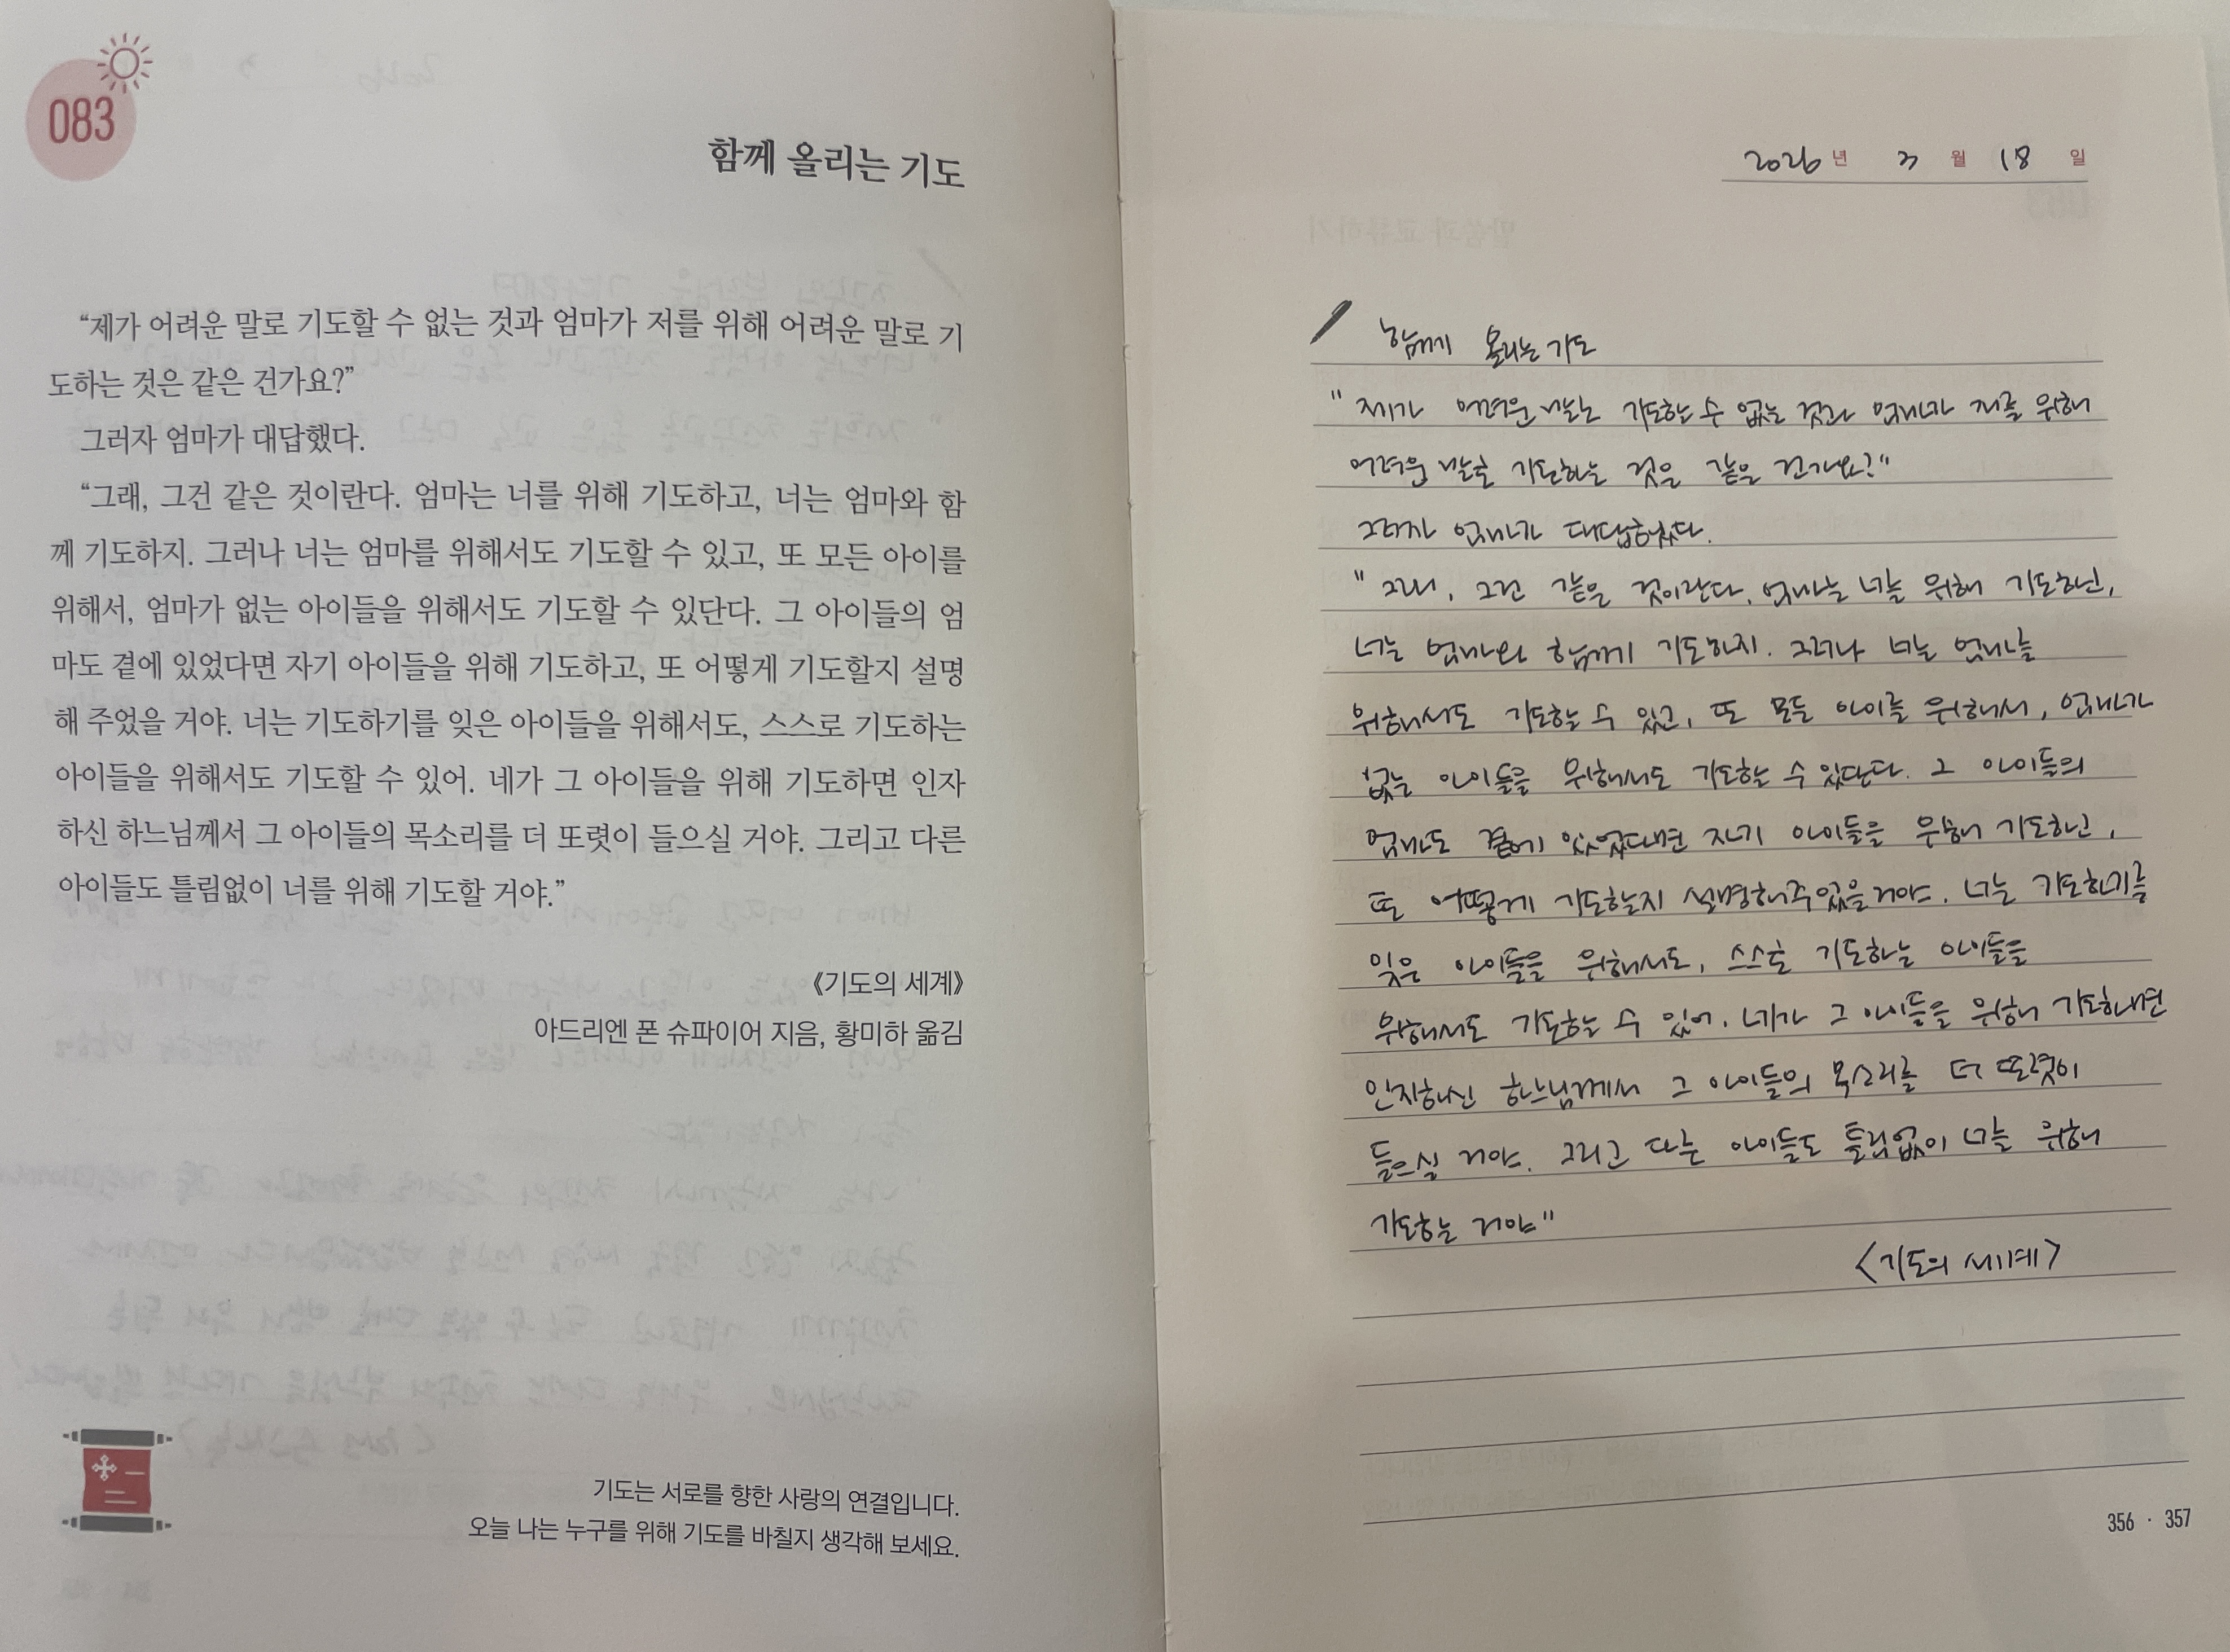 083
함께 올리는 기도
“제가 어려운 말로 기도할 수 없는 것과 엄마가 저를 위해 어려운 말로 기
도하는 것은 같은 건가요?”
그러자 엄마가 대답했다.
“그래, 그건 같은 것이란다. 엄마는 너를 위해 기도하고, 너는 엄마와 함
께 기도하지. 그러나 너는 엄마를 위해서도 기도할 수 있고, 또 모든 아이를
위해서, 엄마가 없는 아이들을 위해서도 기도할 수 있단다. 그 아이들의 엄
마도 곁에 있었다면 자기 아이들을 위해 기도하고, 또 어떻게 기도할지 설명
해 주었을 거야. 너는 기도하기를 잊은 아이들을 위해서도, 스스로 기도하는
아이들을 위해서도 기도할 수 있어. 네가 그 아이들을 위해 기도하면 인자
하신 하느님께서 그 아이들의 목소리를 더 또렷이 들으실 거야. 그리고 다른
아이들도 틀림없이 너를 위해 기도할 거야.”
《기도의 세계》
아드리엔 폰 슈파이어 지음, 황미하 옮김
기도는 서로를 향한 사랑의 연결입니다.
오늘 나는 누구를 위해 기도를 바칠지 생각해 보세요.
2026년 3월 18일
함께 올리는 기도
" 제가 어려운 말로 기도할 수 없는 것과 엄마가 저를 위해
어려운 말로 기도하는 것은 같은 건가요?"
그러자 엄마가 대답했다.
" 그래, 그건 같은 것이란다. 엄마는 너를 위해 기도하고,
너는 엄마와 함께 기도하지. 그러나 너는 엄마를
위해서도 기도할 수 있고, 또 모든 아이를 위해서, 엄마가
없는 아이들을 위해서도 기도할 수 있단다. 그 아이들의
엄마도 곁에 있었다면 자기 아이들을 위해 기도하고,
또 어떻게 기도할지 설명해주었을거야. 너는 기도하기를
잊은 아이들을 위해서도, 스스로 기도하는 아이들을
위해서도 기도할 수 있어. 네가 그 아이들을 위해 기도하면
인자하신 하느님께서 그 아이들의 목소리를 더 또렷이
들으실 거야. 그리고 다른 아이들도 틀림없이 너를 위해
기도하는 거야"
<기도의 세계>
356 · 357